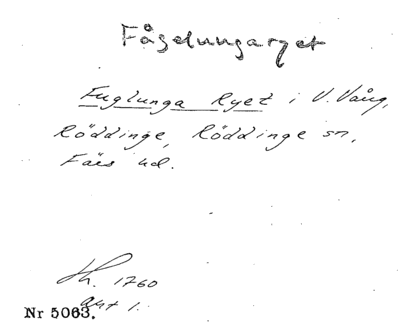 Fågelungaryet
Fuglunga Ryet i V. Vång,
Röddinge, Röddinge sn,
Färs hd.
Sk. 1760
akt 1.
Nr 5063.